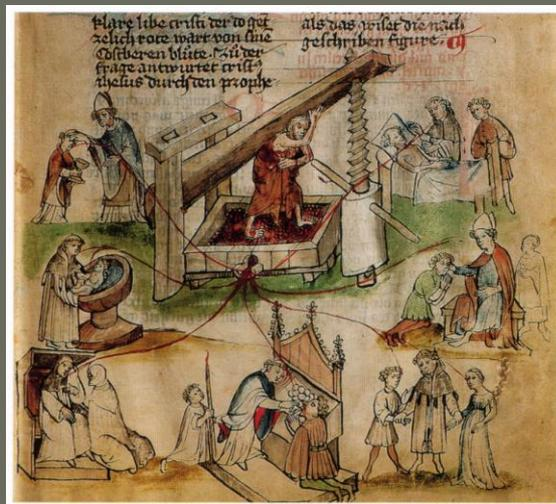 klare libe cristi der do get
zelich rote wart von sine
Costberen blute. Zů der
frage antwurtet crist⁹
ihesus durch den prophe⸗
als das wiset die nach
geschriben figure.